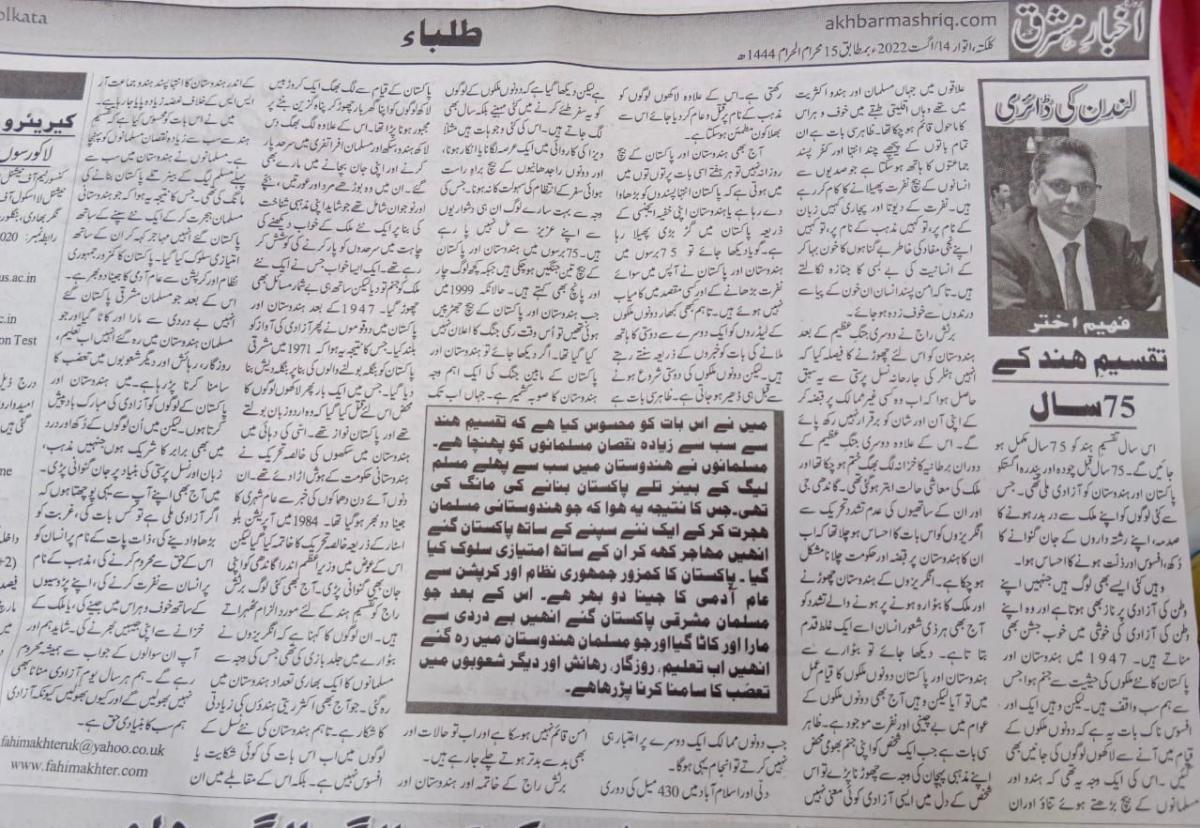 olkata
طلباء
akhbarmashriq.com
کلکتہ، اتوار 14/اگست 2022ء بمطابق 15 محرام الحرام 1444ھ
اخبار مشرق
لندن کی ڈائری
فہیم اختر
تقسیم ھند کے
75 سال
اس سال تقسیم ہند کو 75 سال مکمل ہو
جائیں گے۔ 75 سال قبل چودہ اور پندرہ اگست کو
پاکستان اور ہندوستان کو آزادی ملی تھی۔ جس
سے کئی لوگوں کو اپنے ملک سے در بدر ہونے کا
صدمہ، اپنے رشتہ داروں کے جان گنوانے کا
دکھ، افسوس اور ذلت ہونے کا احساس ہوا۔
وہیں کئی ایسے بھی لوگ ہیں جنہیں اپنے
وطن کی آزادی پر ناز بھی ہوتا ہے اور وہ اپنے
وطن کی آزادی کی خوشی میں خوب جشن بھی
مناتے ہیں۔ 1947 میں ہندوستان اور
پاکستان کا نئے ملکوں کی حیثیت سے جنم ہوا جس
سے ہم سب واقف ہیں۔ لیکن وہیں ایک اور
افسوس ناک بات یہ ہے کہ دونوں ملکوں کے
قیام میں آنے سے لاکھوں لوگوں کی جانیں بھی
گئیں۔ اس کی ایک وجہ یہ تھی کہ ہندو اور
مسلمانوں کے بیچ بڑھتے ہوئے تناؤ اور ان
علاقوں میں جہاں مسلمان اور ہندو اکثریت
میں تھے وہاں اقلیتی طبقے میں خوف و ہراس
کا ماحول قائم ہو چکا تھا۔ ظاہری بات ہے ان
تمام باتوں کے پیچھے چند انتہا اور کٹر پسند
جماعتوں کا ہاتھ ہو سکتا ہے جو صدیوں سے
انسانوں کے بیچ نفرت پھیلانے کا کام کر رہے
ہیں۔ نفرت کے دیوتا اور پجاری کہیں زبان
کے نام پر، تو کہیں مذہب کے نام پر، تو کہیں
اپنے نجی مفاد کی خاطر بے گناہوں کا خون بہا کر
کے انسانیت کی بے بسی کا جنازہ نکالتے
ہیں۔ تا کہ امن پسند انسان ان خون کے پیاسے
درندوں سے خوف زدہ ہو جائے۔
برٹش راج نے دوسری جنگ عظیم کے بعد
ہندوستان کو اس لئے چھوڑنے کا فیصلہ کیا کہ
انہیں ہٹلر کی جارحانہ نسل پرستی سے یہ سبق
حاصل ہوا کہ اب وہ کسی غیر ممالک پر قبضہ کر
کے اپنی آن اور شان کو برقرار نہیں رکھ پائے
گے۔ اس کے علاوہ دوسری جنگ عظیم کے
دوران برطانیہ کا خزانہ لگ بھگ ختم ہو چکا تھا اور
ملک کی معاشی حالت ابتر ہو گئی تھی۔ گاندھی جی
اور ان کے ساتھیوں کی عدم تشدد تحریک سے
انگریزوں کو اس بات کا احساس ہو چلا تھا کہ اب
ان کا ہندوستان پر قبضہ اور حکومت چلانا مشکل
ہو چکا ہے۔ انگریزوں کے ہندوستان چھوڑنے
اور ملک کا بٹوارہ ہونے پر ہونے والے تشدد کو
آج بھی ہر ذی شعور انسان اسے ایک غلط قدم
بتا تا ہے۔ دیکھا جائے تو بٹوارے سے
ہندوستان اور پاکستان دونوں ملکوں کا قیام عمل
میں تو آیا لیکن وہیں آج بھی دونوں ملکوں کے
عوام میں بے چینی اور نفرت موجود ہے۔ ظاہر
سی بات ہے جب ایک شخص کو اپنی جنم بھومی محض
اپنے مذہبی پہچان کی وجہ سے چھوڑنا پڑے تو اس
شخص کے دل میں ایسی آزادی کوئی معنی نہیں
رکھتی ہے۔ اس کے علاوہ لاکھوں لوگوں کو
مذہب کے نام پر قتل و عام کر دیا جائے اس سے
بھلا کون مطمئن ہو سکتا ہے۔
آج بھی ہندوستان اور پاکستان کے بیچ
روزانہ نہیں تو ہر ہفتے اسی بات پر توں توں میں
میں ہوتی ہے کہ پاکستان انتہا پسندوں کو بڑھاوا
دے رہا ہے یا ہندوستان اپنی خفیہ ایجنسی کے
ذریعہ پاکستان میں گڑ بڑی پھیلا رہا
ہے۔ گویا دیکھا جائے تو 75 برسوں میں
ہندوستان اور پاکستان نے آپس میں سوائے
نفرت بڑھانے کے اور کسی مقصد میں کامیاب
نہیں ہوئے ہیں۔ تاہم کبھی کبھار دونوں ملکوں
کے لیڈروں کو ایک دوسرے سے دوستی کا ہاتھ
ملانے کی بات کو خبروں کے ذریعہ سنتے رہتے
ہیں۔ لیکن دونوں ملکوں کی دوستی شروع ہونے
سے قبل ہی ڈھیر ہو جاتی ہے۔ ظاہری بات ہے
جب دونوں ممالک ایک دوسرے پر اعتبار ہی
نہیں کرتے تو انجام یہی ہوگا۔
دلی اور اسلام آباد میں 430 میل کی دوری
ہے لیکن دیکھا گیا ہے کہ دونوں ملکوں کے لوگوں
کو یہ سفر طئے کرنے میں کئی مہینے بلکہ سال بھی
لگ جاتے ہیں۔ اس کی کئی وجوہات ہیں مثلاً
ویزا کی کاروائی میں ایک عرصہ لگانا یا انکار ہونا،
اور دونوں راجدھانیوں کے بیچ براہ راست
ہوائی سفر کے انتظام کی سہولت کا نہ ہونا۔ جس کی
وجہ سے بہت سارے لوگ ان ہی دشواریوں
سے اپنے عزیز سے مل نہیں پا رہے
ہیں۔ 75 برسوں میں ہندوستان اور پاکستان
کے بیچ تین جنگیں ہو چکی ہیں جبکہ کچھ لوگ چار
اور پانچ بھی کہتے ہیں۔ حالانکہ 1999 میں
جب ہندوستان اور پاکستان کے بیچ جھڑپیں
ہوئی تھیں تو اُس وقت رسمی جنگ کا اعلان نہیں
کیا گیا تھا۔ اگر دیکھا جائے تو ہندوستان اور
پاکستان کے مابین جنگ کی ایک اہم وجہ
ہندوستان کا صوبہ کشمیر ہے۔ جہاں اب تک
امن قائم نہیں ہو سکا ہے اور اب تو حالات اور
بھی بد سے بدتر ہوتے چلے جا رہے ہیں۔
برٹش راج کے خاتمہ اور ہندوستان اور
میں نے اس بات کو محسوس کیا ھے کہ تقسیم ھند
سے سب سے زیادہ نقصان مسلمانوں کو پھنچا ھے۔
مسلمانوں نے ھندوستان میں سب سے پھلے مسلم
لیگ کے بینر تلے پاکستان بنانے کی مانگ کی
تھی۔ جس کا نتیجہ یہ ھوا کہ جو ھندوستانی مسلمان
ھجرت کر کے ایک نئے سپنے کے ساتھ پاکستان گئے
انھیں مھاجر کھہ کر ان کے ساتھ امتیازی سلوک کیا
گیا۔ پاکستان کا کمزور جمھوری نظام اور کرپشن سے
عام آدمی کا جینا دو بھر ھے۔ اس کے بعد جو
مسلمان مشرقی پاکستان گئے انھیں بے دردی سے
مارا اور کاٹا گیا اور جو مسلمان ھندوستان میں رہ گئے
انھیں اب تعلیم، روزگار، رھائش اور دیگر شعوبوں میں
تعصب کا سامنا کرنا پڑ رھا ھے۔
پاکستان کے قیام سے لگ بھگ ایک کروڑ بیس
لاکھ لوگوں کو اپنا گھر بار چھوڑ کر پناہ گزین بننے پر
مجبور ہونا پڑا تھا۔ اس کے علاوہ لگ بھگ دس
لاکھ ہندو، سکھ اور مسلمان افراتفری میں سرحد پار
کرنے اور اپنی جان بچانے میں مارے بھی
گئے۔ ان میں وہ بوڑھے مرد اور عورتیں، بچے
اور نوجوان شامل تھے جو شاید اپنی مذہبی شناخت
کی بنا پر ایک نئے ملک کے خواب کو دیکھنے کی
چاہت میں سرحدوں کو پار کرنے کی کوشش کر
رہے تھے۔ ایک ایسا خواب جس نے ایک نئے
ملک کو جنم تو دیا لیکن ساتھ ہی بے شمار مسائل بھی
چھوڑ گیا۔ 1947 کے بعد ہندوستان اور
پاکستان میں دو قوموں نے پھر آزادی کی آواز کو
بلند کیا۔ جس کا نتیجہ یہ ہوا کہ 1971 میں مشرقی
پاکستان کو بنگلہ بولنے والوں کی بنا پر بنگلہ دیش بنا
دیا گیا۔ جس میں ایک بار پھر لاکھوں لوگوں کا
محض اس لئے قتل کیا گیا کہ وہ اردو زبان بولتے
تھے اور پاکستان نواز تھے۔ اسّی کی دہائی میں
ہندوستان میں سکھوں کی خالصہ تحریک نے
ہندوستانی حکومت کے ہوش اڑا دئے تھے۔ ان
دنوں آئے دن دھماکوں کی خبر سے عام شہری کا
جینا دو بھر ہو گیا تھا۔ 1984 میں آپریشن بلو
اسٹار کے ذریعہ خالصہ تحریک کا خاتمہ کیا گیا لیکن
اس کے عوض میں وزیر اعظم اندرا گاندھی کو اپنی
جان بھی گنوانی پڑی۔ آج بھی کئی لوگ برٹش
راج کو تقسیم ہند کے لئے مورد الزام ٹھہراتے
ہیں۔ ان لوگوں کا کہنا ہے کہ انگریزوں نے
بٹوارے میں جلد بازی کی تھی جس کی وجہ سے
مسلمانوں کا ایک بھاری تعداد ہندوستان میں
رہ گئی۔ جو آج بھی اکثریتی ہندوؤں کی زیادتی
کا شکار ہے۔ تاہم ہندوستان کی نئے نسل کے
لوگوں میں اب اس بات کی کوئی شکایت یا
افسوس نہیں ہے۔ بلکہ اس کے مقابلے میں ان
کے اندر ہندوستان کا انتہا پسند ہندو جماعت آر
ایس ایس کے خلاف غصہ زیادہ پایا جا رہا ہے۔
میں نے اس بات کو محسوس کیا ہے کہ تقسیم
ہند سے سب سے زیادہ نقصان مسلمانوں کو پہنچا
ہے۔ مسلمانوں نے ہندوستان میں سب سے
پہلے مسلم لیگ کے بینر تلے پاکستان بنانے کی
مانگ کی تھی۔ جس کا نتیجہ یہ ہوا کہ جو ہندوستانی
مسلمان ہجرت کر کے ایک نئے سپنے کے ساتھ
پاکستان گئے انہیں مہاجر کہہ کر ان کے ساتھ
امتیازی سلوک کیا گیا۔ پاکستان کا کمزور جمہوری
نظام اور کرپشن سے عام آدمی کا جینا دو بھر ہے۔
اس کے بعد جو مسلمان مشرقی پاکستان گئے
انہیں بے دردی سے مارا اور کاٹا گیا اور جو
مسلمان ہندوستان میں رہ گئے انہیں اب تعلیم،
روزگار، رہائش اور دیگر شعوبوں میں تعصب کا
سامنا کرنا پڑ رہا ہے۔ میں ہندوستان اور
پاکستان کے لوگوں کو آزادی کی مبارک باد پیش
کرتا ہوں۔ لیکن میں اُن لوگوں کے دکھ اور درد
میں بھی برابر کا شریک ہوں جنہیں مذہب،
زبان اور نسل پرستی کی بنیاد پر جان گنوانی پڑی۔
میں آج بھی اپنے آپ سے یہی پوچھتا ہوں کہ
اگر آزادی ملی ہے تو کس بات کی، غربت کو
بڑھاوا دینے کی، ذات پات کے نام پر انسان کو
اس کے حق سے محروم کرنے کی، مذہب کے نام
پر انسان سے نفرت کرنے کی، اپنے پڑوسیوں
کے ساتھ خوف و ہراس میں جینے کی، یا ملک کے
خزانے سے اپنی جیبیں بھرنے کی۔ شاید ہم اور
آپ ان سوالوں کے جواب سے ہمیشہ محروم
رہے گے۔ ہم ہر سال یوم آزادی منانا بھی
نہیں بھولیں گے اور کیوں بھولیں کیونکہ آزادی
ہم سب کا بنیادی حق ہے۔
fahimakhteruk@yahoo.co.uk
www.fahimakhter.com
کیریئر و
لا کورسوں
نیشنل لا اسکول آف
رابطہ نمبر: 020
us.ac.in
c.in
on Test
درج ذیل
امیدوار
گئی ہیں
me
داخلہ
2+)
فیصد
مارچ
میں